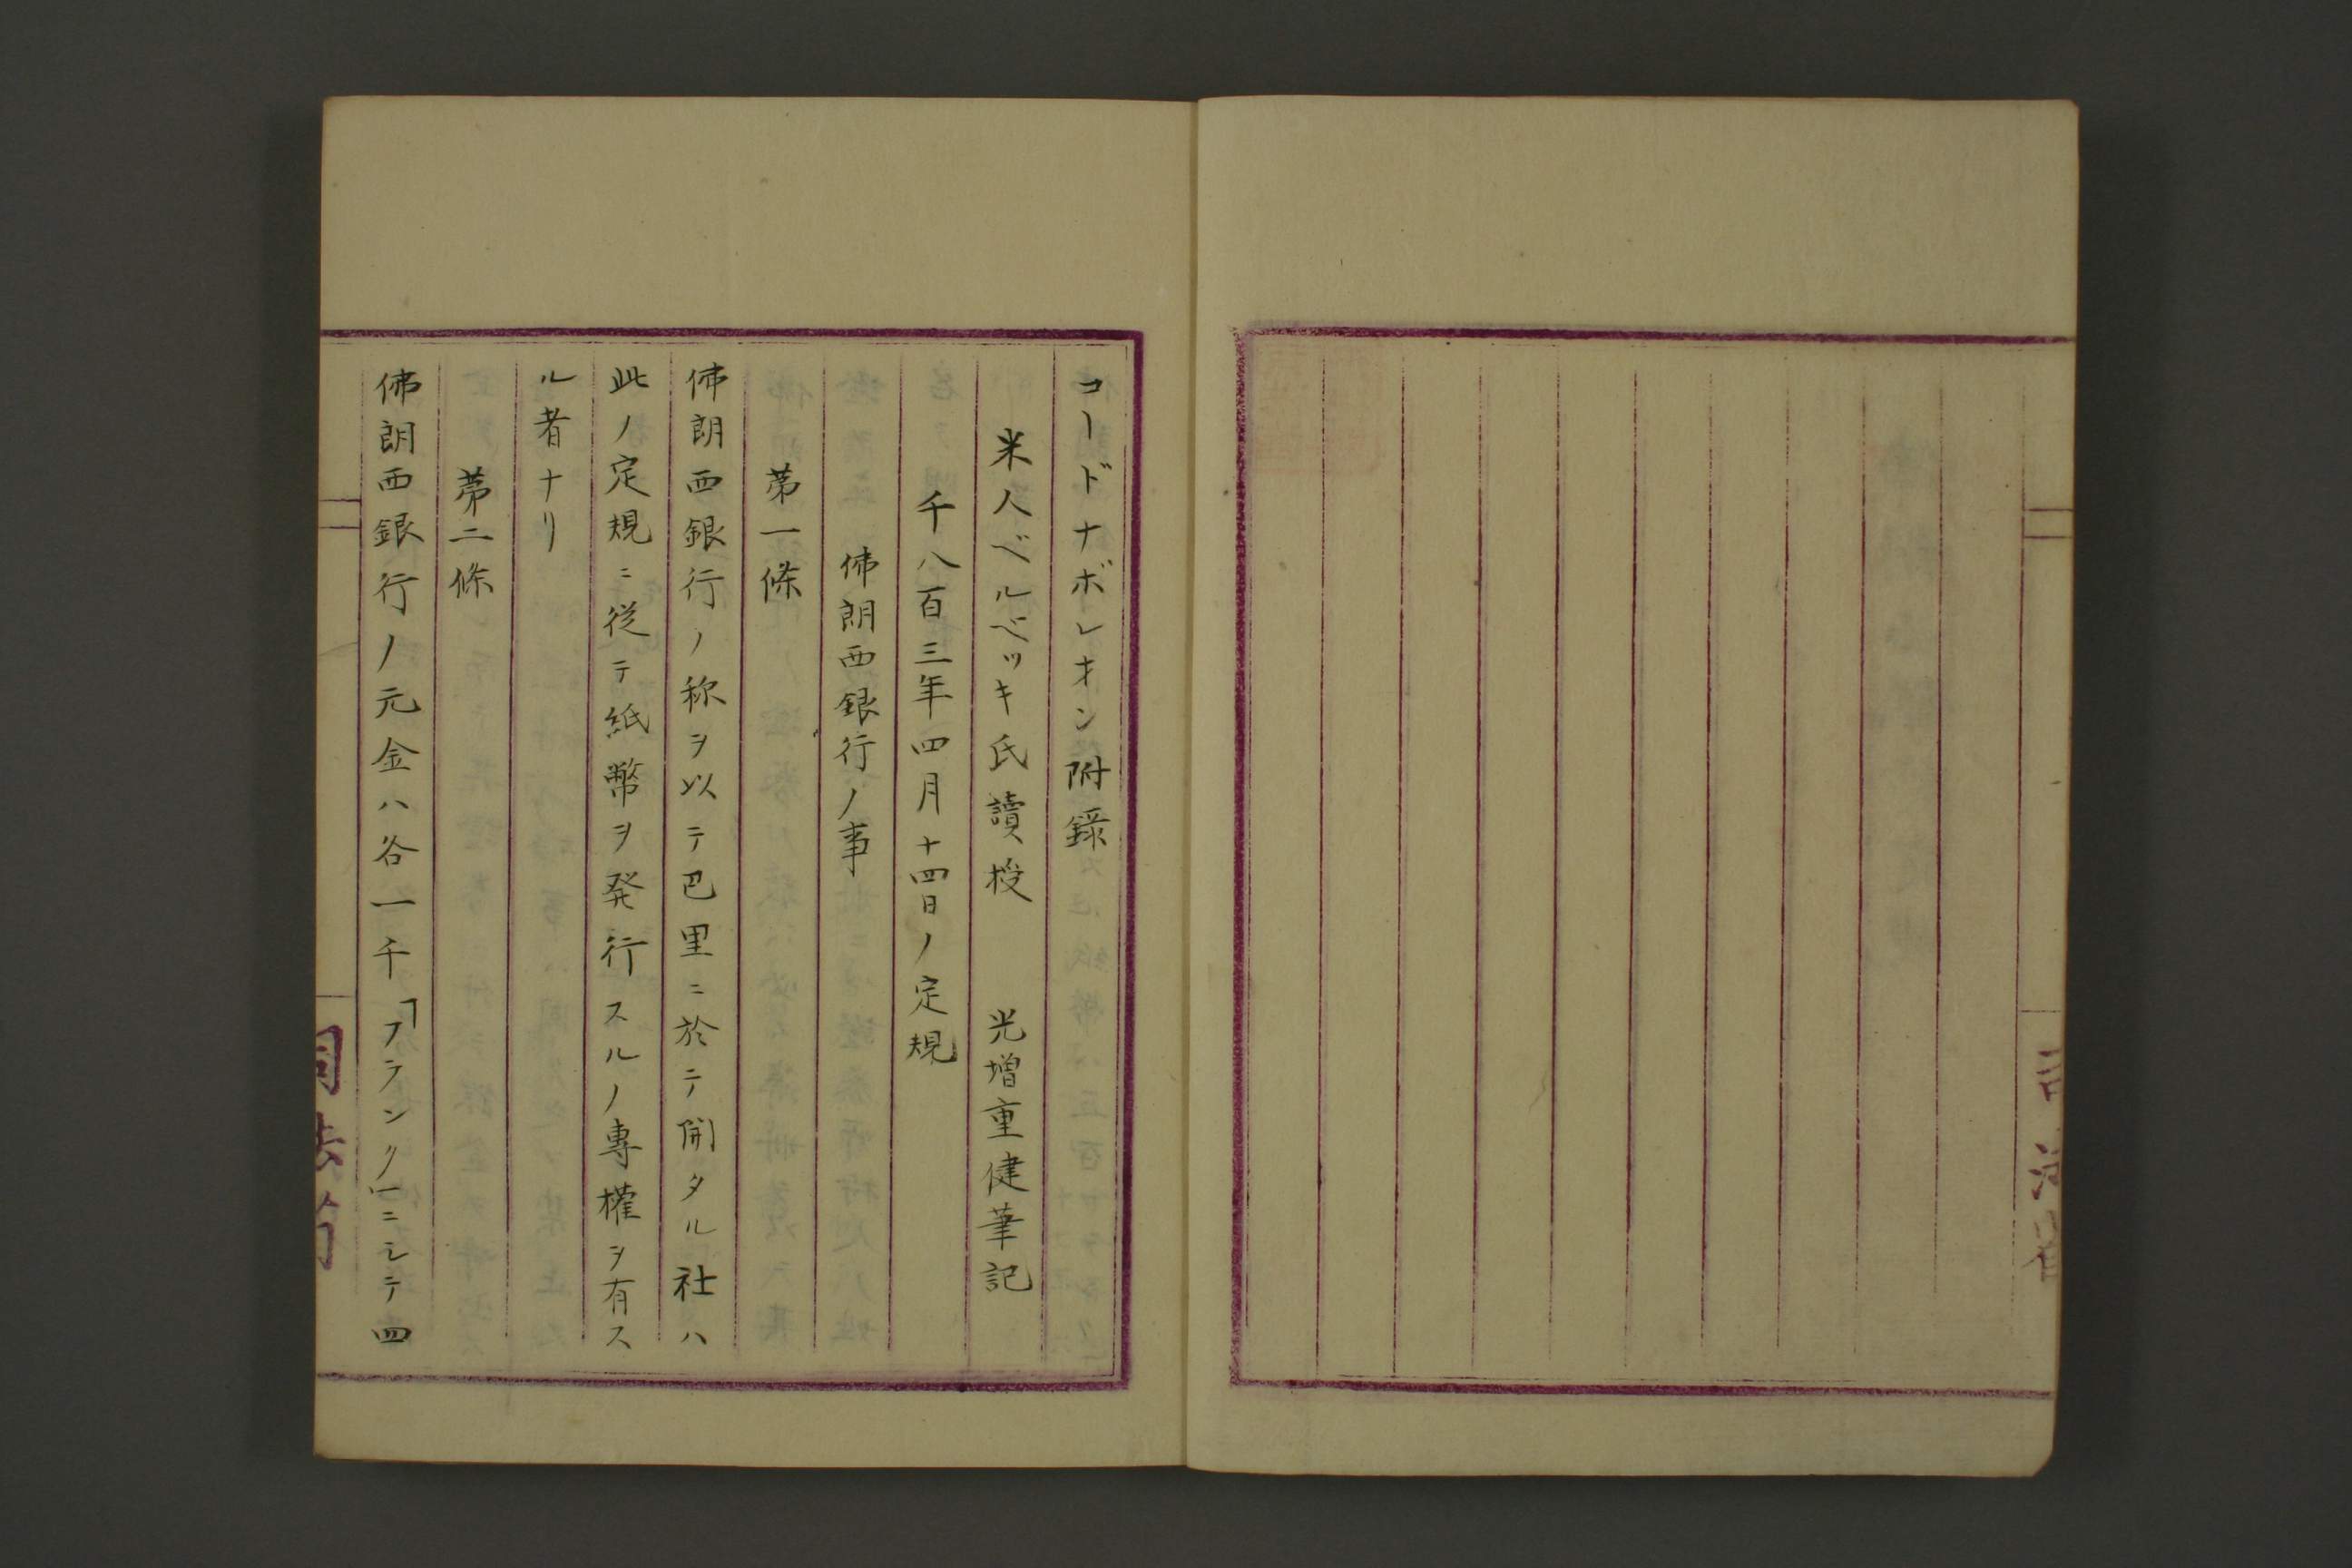 コードナポレオン附録
米人ベルベッキ氏讀授 光増重健筆記
千八百三年四月十四日ノ定規
佛朗西銀行ノ事
第一條
佛朗西銀行ノ称ヲ以テ巴里ニ於テ開タル社ハ
此ノ定規ニ從テ紙幣ヲ発行スルノ專權ヲ有ス
ル者ナリ
第二條
佛朗西銀行ノ元金ハ各一千「フランク」ニシテ四
司法省